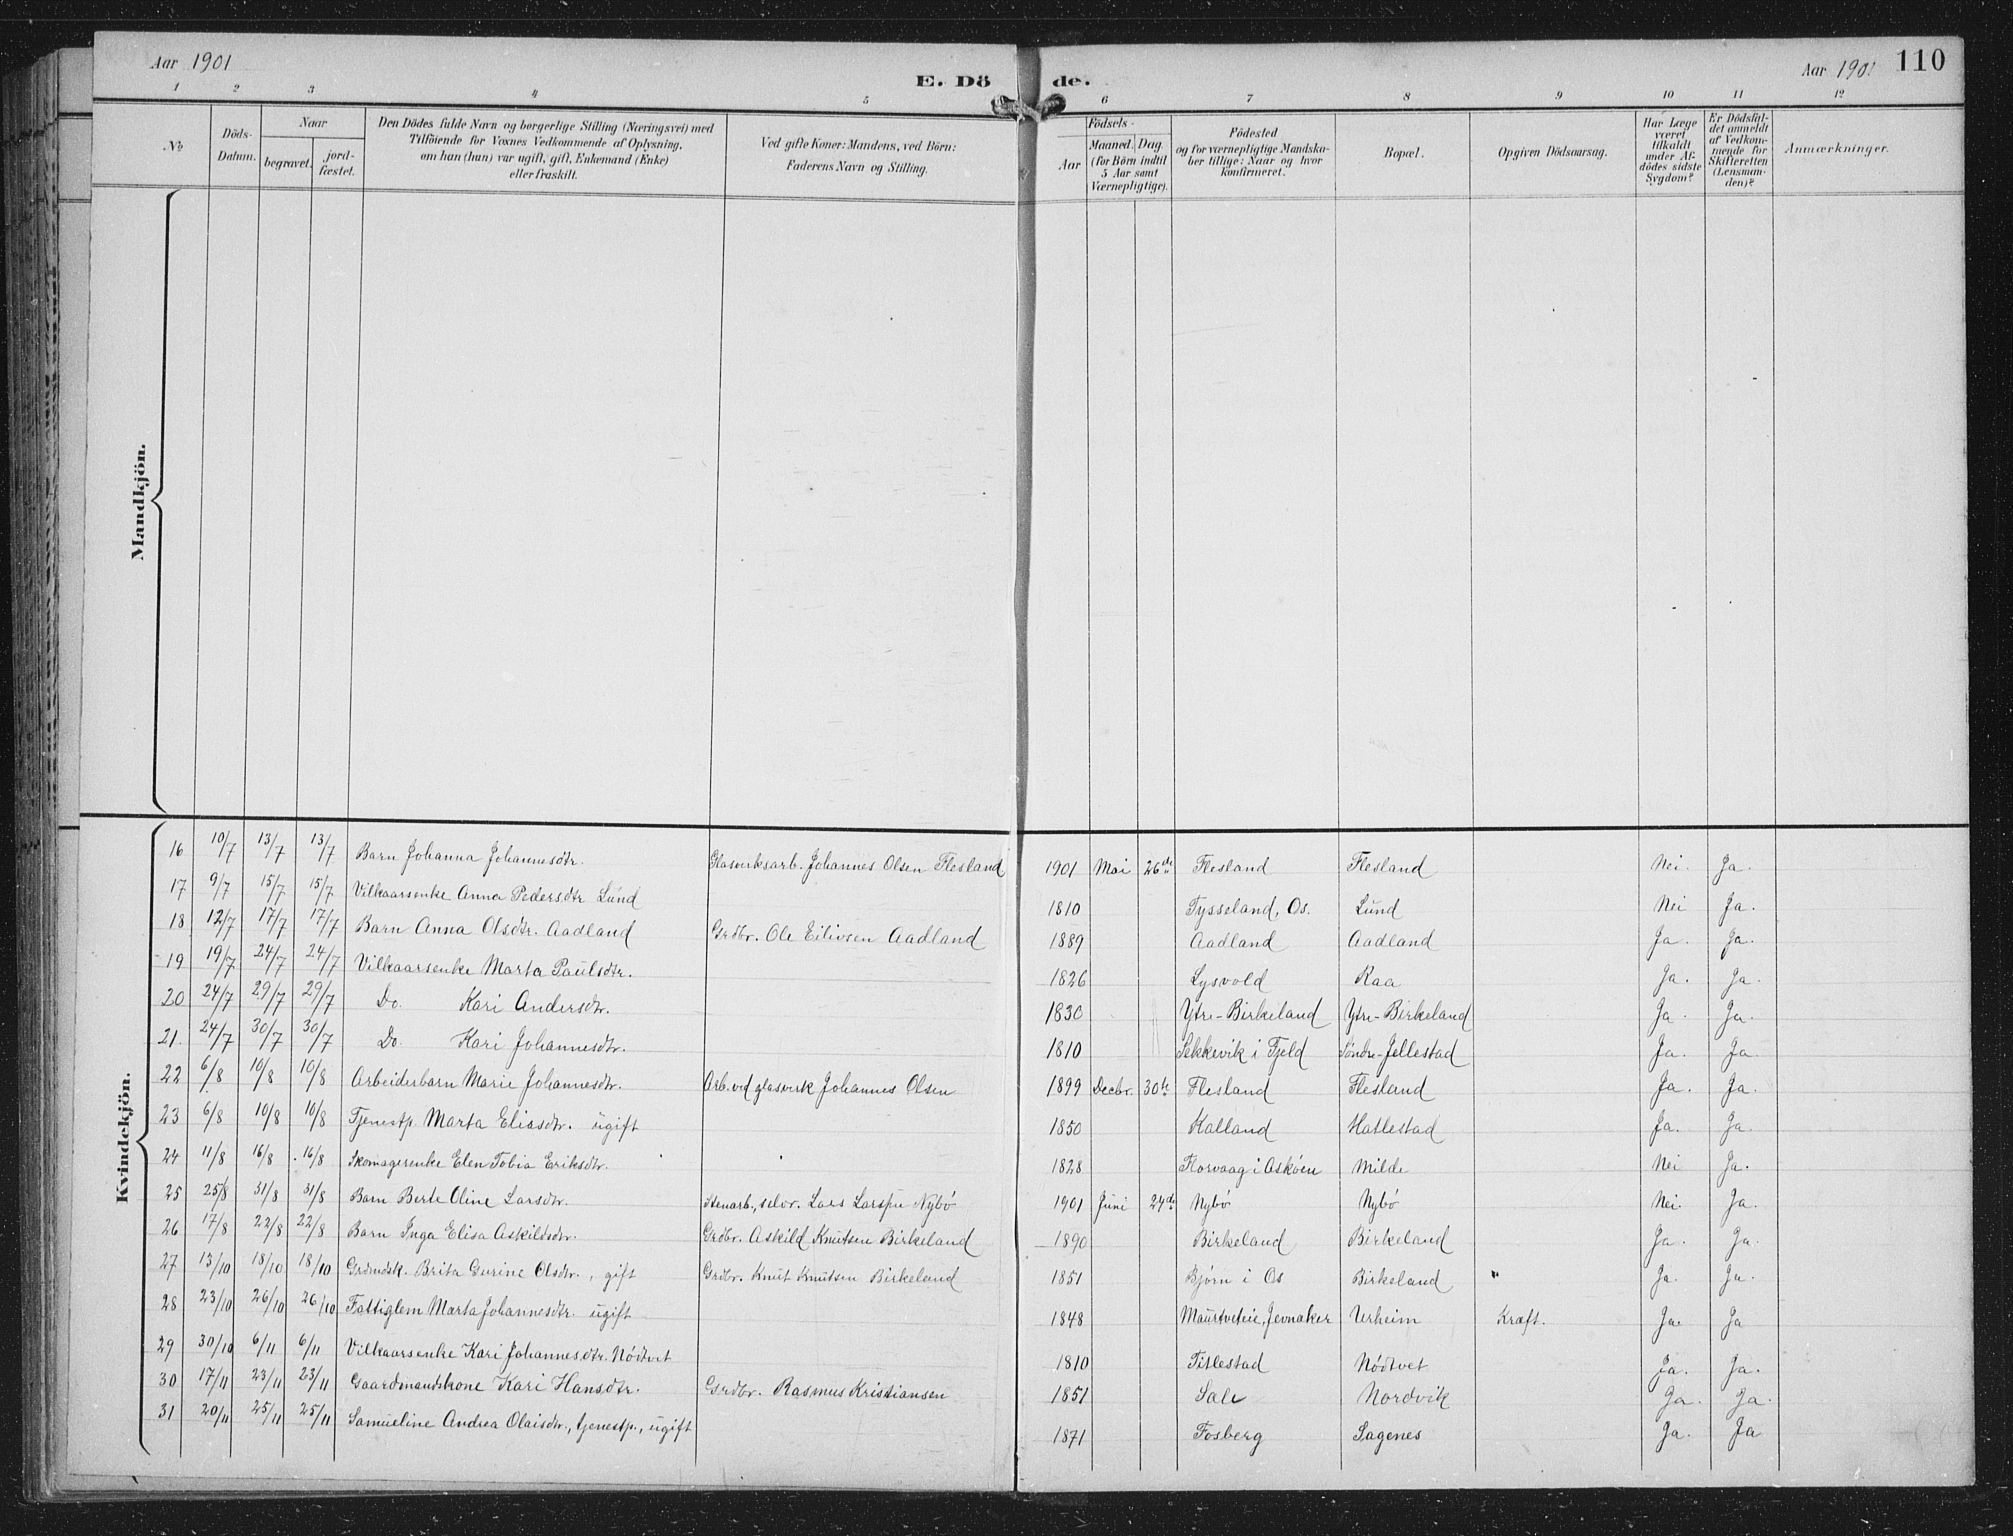 Aar 1901
E. Dö de.
Aar 1901 110
1 2 3 4 5 6 7 8 9 10 11 12
No
Döds-Datum.
Naar
begravet.
jord-fæstet.
Den Dödes fulde Navn og borgerlige Stilling (Næringsvei) med
Tilföiende for Voxnes Vedkommende af Oplysning,
om han (hun) var ugift, gift, Enkemand (Enke)
eller fraskilt.
Ved gifte Koner: Mandens, ved Börn:
Faderens Navn og Stilling.
Födsels-
Aar
Maaned. Dag.
(for Börn indtil
5 Aar samt
Værnepligtige).
Födested
og for værnepligtige Mandska-
ber tillige: Naar og hvor
konfirmeret.
Bopæl.
Opgiven Dödsaarsag.
Har Læge
været
tilkaldt
under Af-
dödes sidste
Sygdom?
Er Dödsfal-
det anmeldt
af Vedkom-
mende for
Skifteretten
(Lensman-
den)?
Anmærkninger.
Mandkjön.
Kvindekjön.
16 10/7 13/7 13/7 Barn Johanna Johannesdtr. Glasverksarb. Johannes Olsen Flesland 1901 Mai 26de Flesland Flesland Nei. Ja.
17 9/7 15/7 15/7 Vilkaarsenke Anna Pedersdtr Lund 1810 Tysseland, Os. Lund Nei Ja.
18 12/7 17/7 17/7 Barn Anna Olsdtr. Aadland Grdbr. Ole Eilivsen Aadland 1889 Aadland Aadland Ja. Ja.
19 19/7 24/7 24/7 Vilkaarsenke Marta Paulsdtr. 1826 Lysvold Raa Ja. Ja.
20 24/7 29/7 29/7 Do. Kari Andersdtr. 1830 Ytre-Birkeland Ytre-Birkeland Ja. Ja.
21. 24/7 30/7 30/7 Do. Kari Johannesdtr. 1810 Sekkevik i Fjeld Söndre-Jellestad Ja. Ja
22 6/8 10/8 10/8 Arbeiderbarn Marie Johannesdtr. Arb. ved glasverk Johannes Olsen 1899 Decbr. 30te Flesland Flesland Ja. Ja.
23 6/8 10/8 10/8 Tjenestp. Marta Eliasdtr. ugift 1850 Kalland Hatlestad Ja. Ja.
24 11/8 16/8 16/8 Skomagerenke Elen Tobia Eriksdtr. 1828 Florvaag i Asköen Milde Nei Ja.
25 25/8 31/8 31/8 Barn Berte Oline Larsdtr. Stenarb., selv. Lars Larssen Nybö 1901 Juni 24de Nybö Nybö Nei. Ja.
26 17/8 22/8 22/8 Barn Inga Elisa Askildsdtr. Grdbr. Askild Knutsen Birkeland 1890 Birkeland Birkeland Ja. Ja.
27 13/10 18/10 18/10 Grdmdsk. Brita Gurine Olsdtr., gift Grdbr. Knut Knutsen Birkeland 1851 Bjørn i Os Birkeland " Ja. Ja.
28 23/10 26/10 26/10 Fattiglem Marta Johannesdtr. ugift 1848 Jevnaker Kræft. Ja. Ja
29 30/10 6/11 6/11 Vilkaarsenke Kari Johannesdtr. Nödtvet 1810 Titlestad Nödtvet Ja. Ja.
30 17/11 23/11 23/11 Gaardmandskone Kari Hansdtr. Grdbr. Rasmus Kristiansen 1851 Sale Nordvik Ja. Ja.
31 20/11 25/11 25/11 Samueline Andrea Olaisdtr., tjenestp., ugift 1871 Fosberg Sagenes Ja. Ja